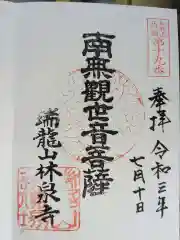 奉拝
令和三年
七月十日
南無觀世音菩薩
瑞龍山林泉寺